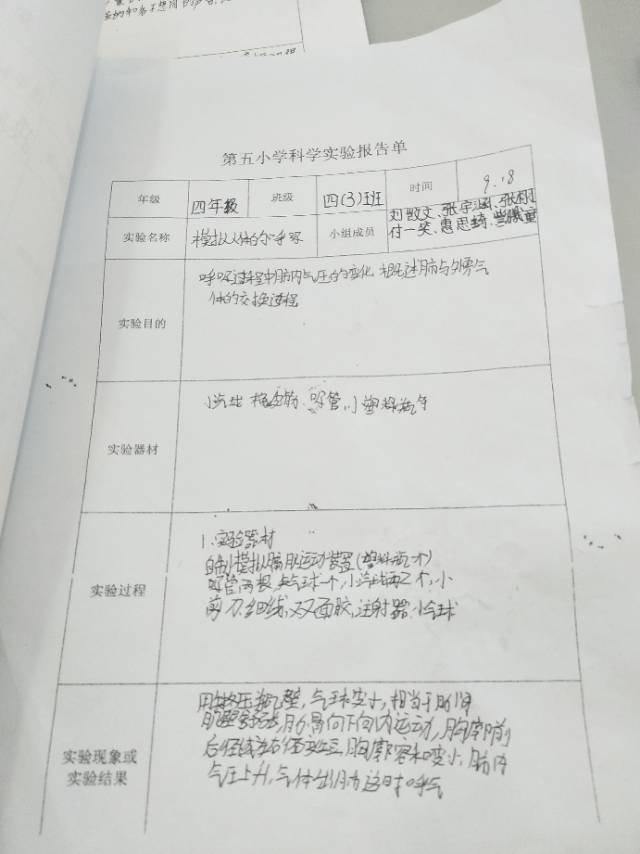 第五小学科学实验报告单
年级 四年级 班级 四(3)班 时间 9.18
实验名称 模拟人体的呼吸 小组成员 刘致文、张宇涵、
付一笑、惠思琦、
实验目的 呼吸过程中肺内气压的变化 概述肺与外界气
体的交换过程
实验器材 小气球 橡皮筋、吸管、小塑料瓶等
实验过程 1.实验器材
自制模拟膈肌运动装置(塑料瓶一个)
吸管两根 大气球一个,小气球两个,小
剪刀.细线,双面胶,注射器.小气球
实验现象或
实验结果 用手挤压瓶壁,气球变小,相当于肋间
肌,肋骨向下向内运动,胸廓前
后径,胸廓容积变小,肺内
气压上升,气体出肺 这时呼气